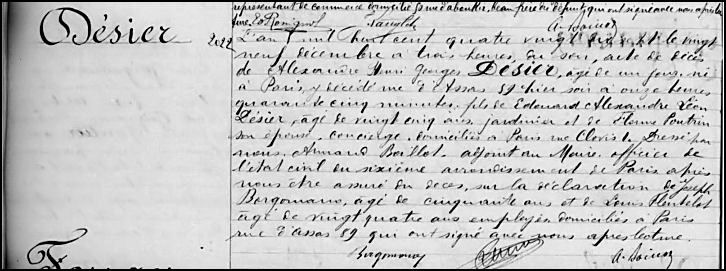 représentant de commerce domicilié
Désier
2022
L'an mil huit cent quatre vingt dix sept le vingt
neuf décembre à trois heures du soir, acte de décès
de Alexandre Henri Georges DÉSIER, âgé de un jour, né
à Paris, y décédé rue d'Assas 89 hier soir à onze heures
quarante cinq minutes, fils de Edouard Alexandre Léon
Désier, âgé de vingt cinq ans, jardinier et de
son épouse, concierge, domiciliés à Paris rue Clovis 1. Dressé par
nous, Armand Boillot, adjoint au Maire, officier de
l'état civil du sixième arrondissement de Paris après
nous être assuré du décès, sur la déclaration de Joseph
Borgomano, âgé de cinquante ans et de Louis
âgé de vingt quatre ans employés domiciliés à Paris
rue d'Assas 89 qui ont signé avec nous après lecture.
Borgomano